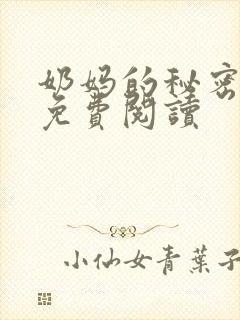 奶妈的秘密
免費閱讀
小仙女青葉子